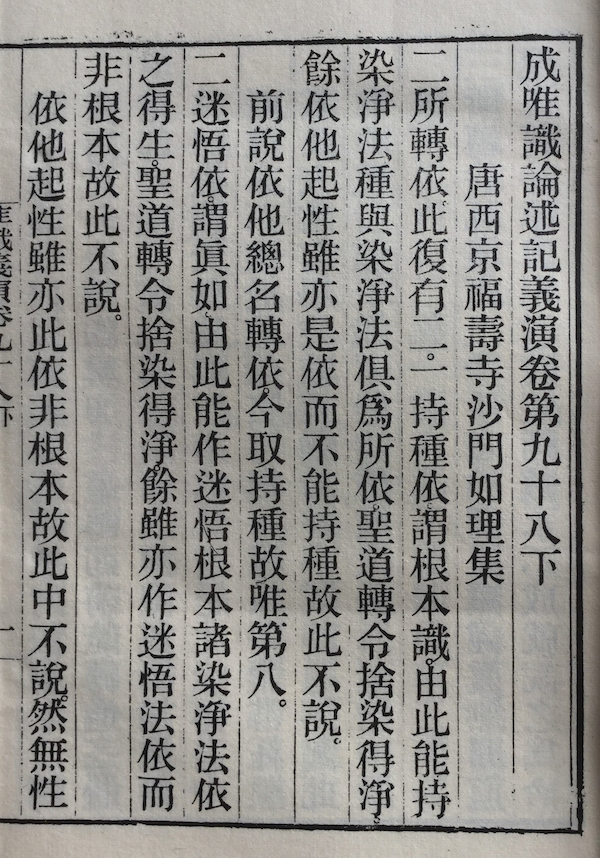 成唯識論述記義演卷第九十八下
唐西京福壽寺沙門如理集
二所轉依。此復有二。一持種依。謂根本識。由此能持
染淨法種與染淨法俱爲所依。聖道轉令捨染得淨。
餘依他起性雖亦是依而不能持種故此不說。
前說依他總名轉依。今取持種故唯第八。
二迷悟依。謂眞如。由此能作迷悟根本諸染淨法依
之得生。聖道轉令捨染得淨。餘雖亦作迷悟法依而
非根本故此不說。
依他起性雖亦此依非根本故此中不說。然無性